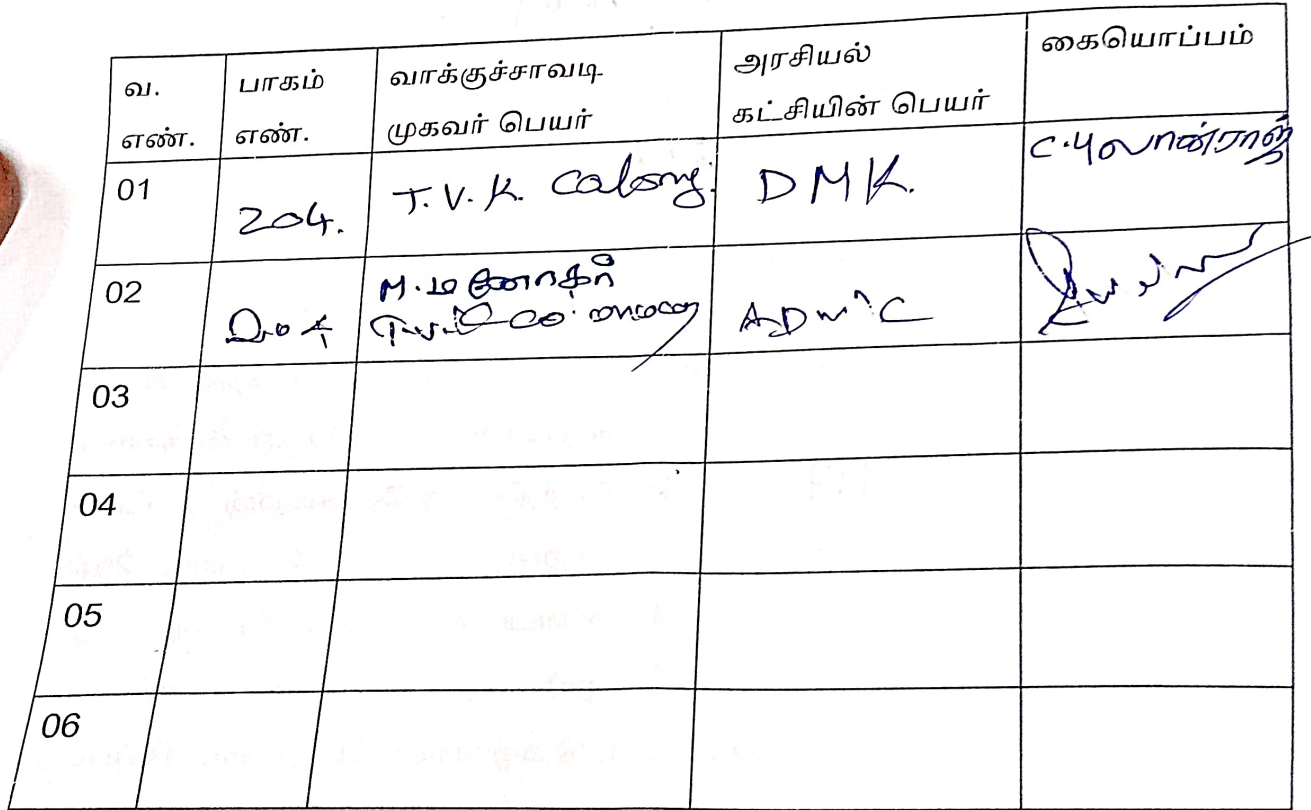 வ. எண்.
பாகம் எண்.
வாக்குச்சாவடி முகவர் பெயர்
அரசியல் கட்சியின் பெயர்
கையொப்பம்
01
204.
T.V.K. Colony.
DMK.
C.புலான்ராஜ்
02
204
M.மனோகர்
03
04
05
06